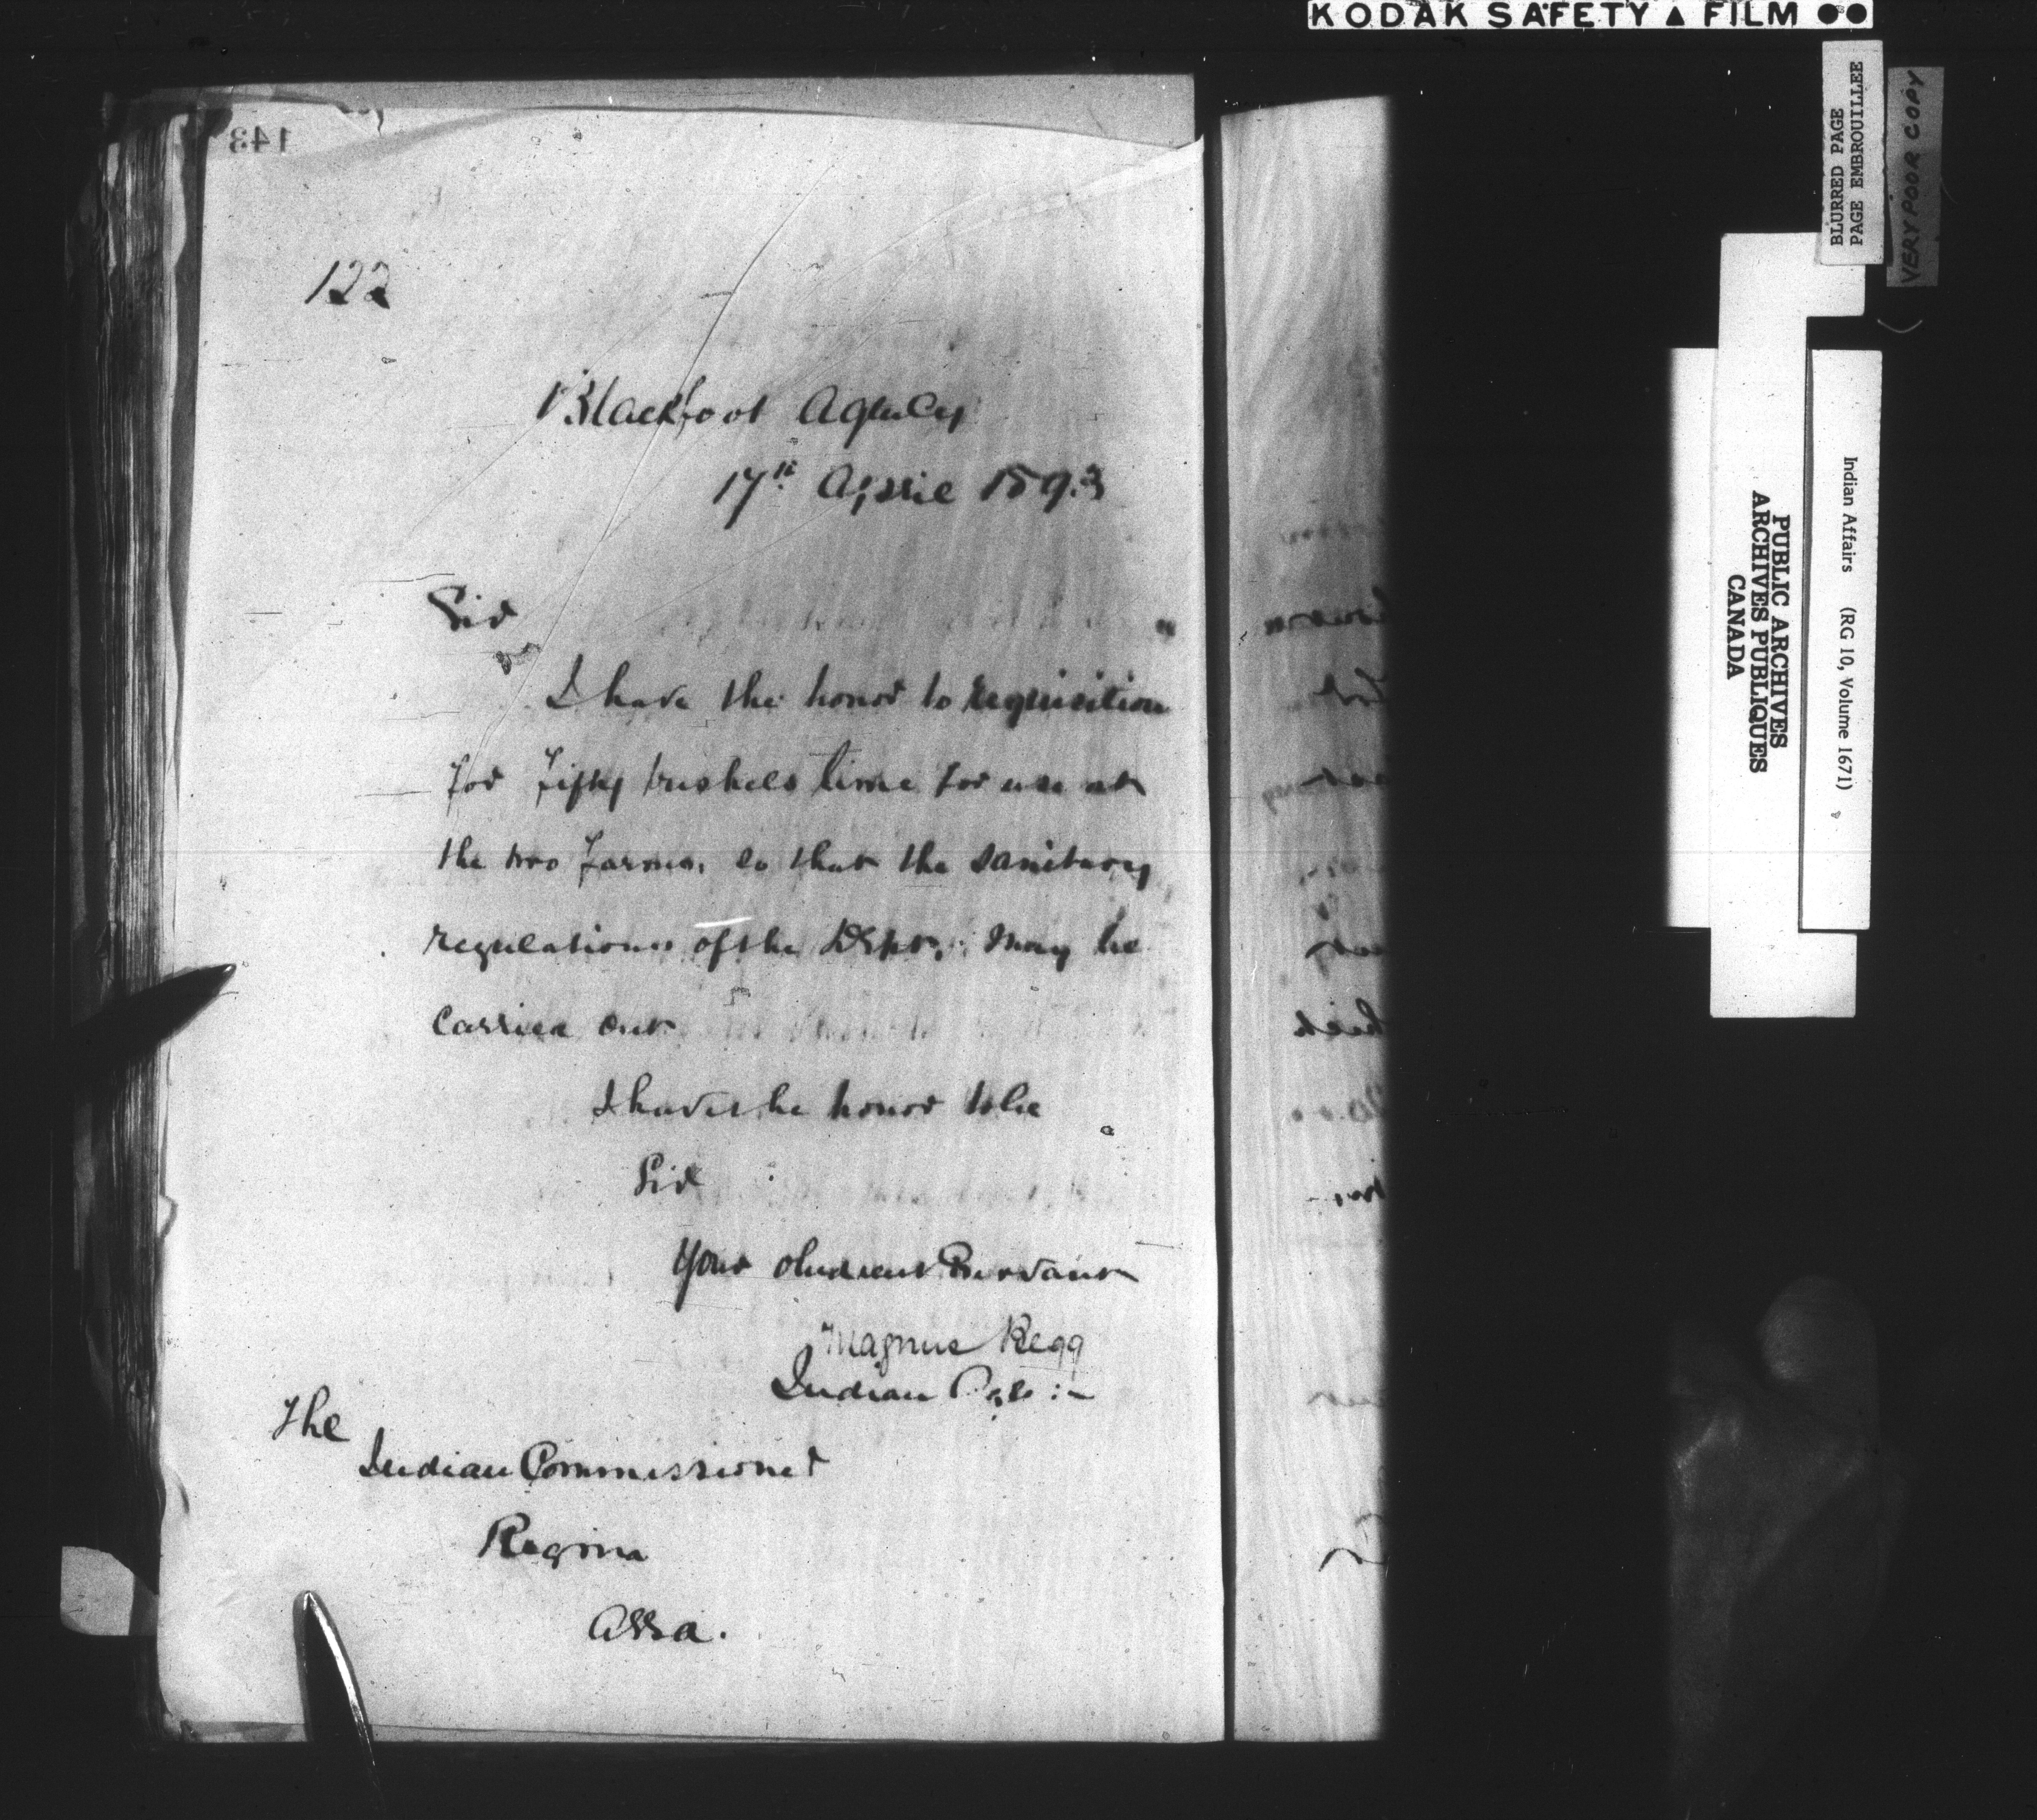 KODAK SAFETY ▲ FILM ●●
BLURRED PAGE
PAGE EMBROUILLEE
VERY POOR COPY
PUBLIC ARCHIVES
ARCHIVES PUBLIQUES
CANADA
Indian Affairs (RG 10, Volume 1671)
143
122
Blackfoot Agency
17th April 1893
Sir
I have the honor to requisition
for fifty bushels lime for use at
the two farms, so that the sanitary
regulations of the Dept. may be
carried out
I have the honor to be
Sir
Your obedient Servant
Magnus Begg
Indian
The
Indian Commissioner
Regina
Assa.